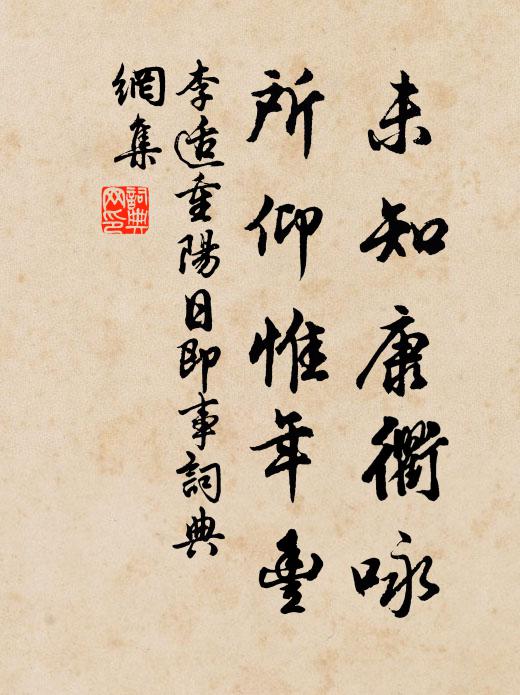 未知康衢咏
所仰惟年豐
李适重陽日即事詞典
網集
詞典
網印